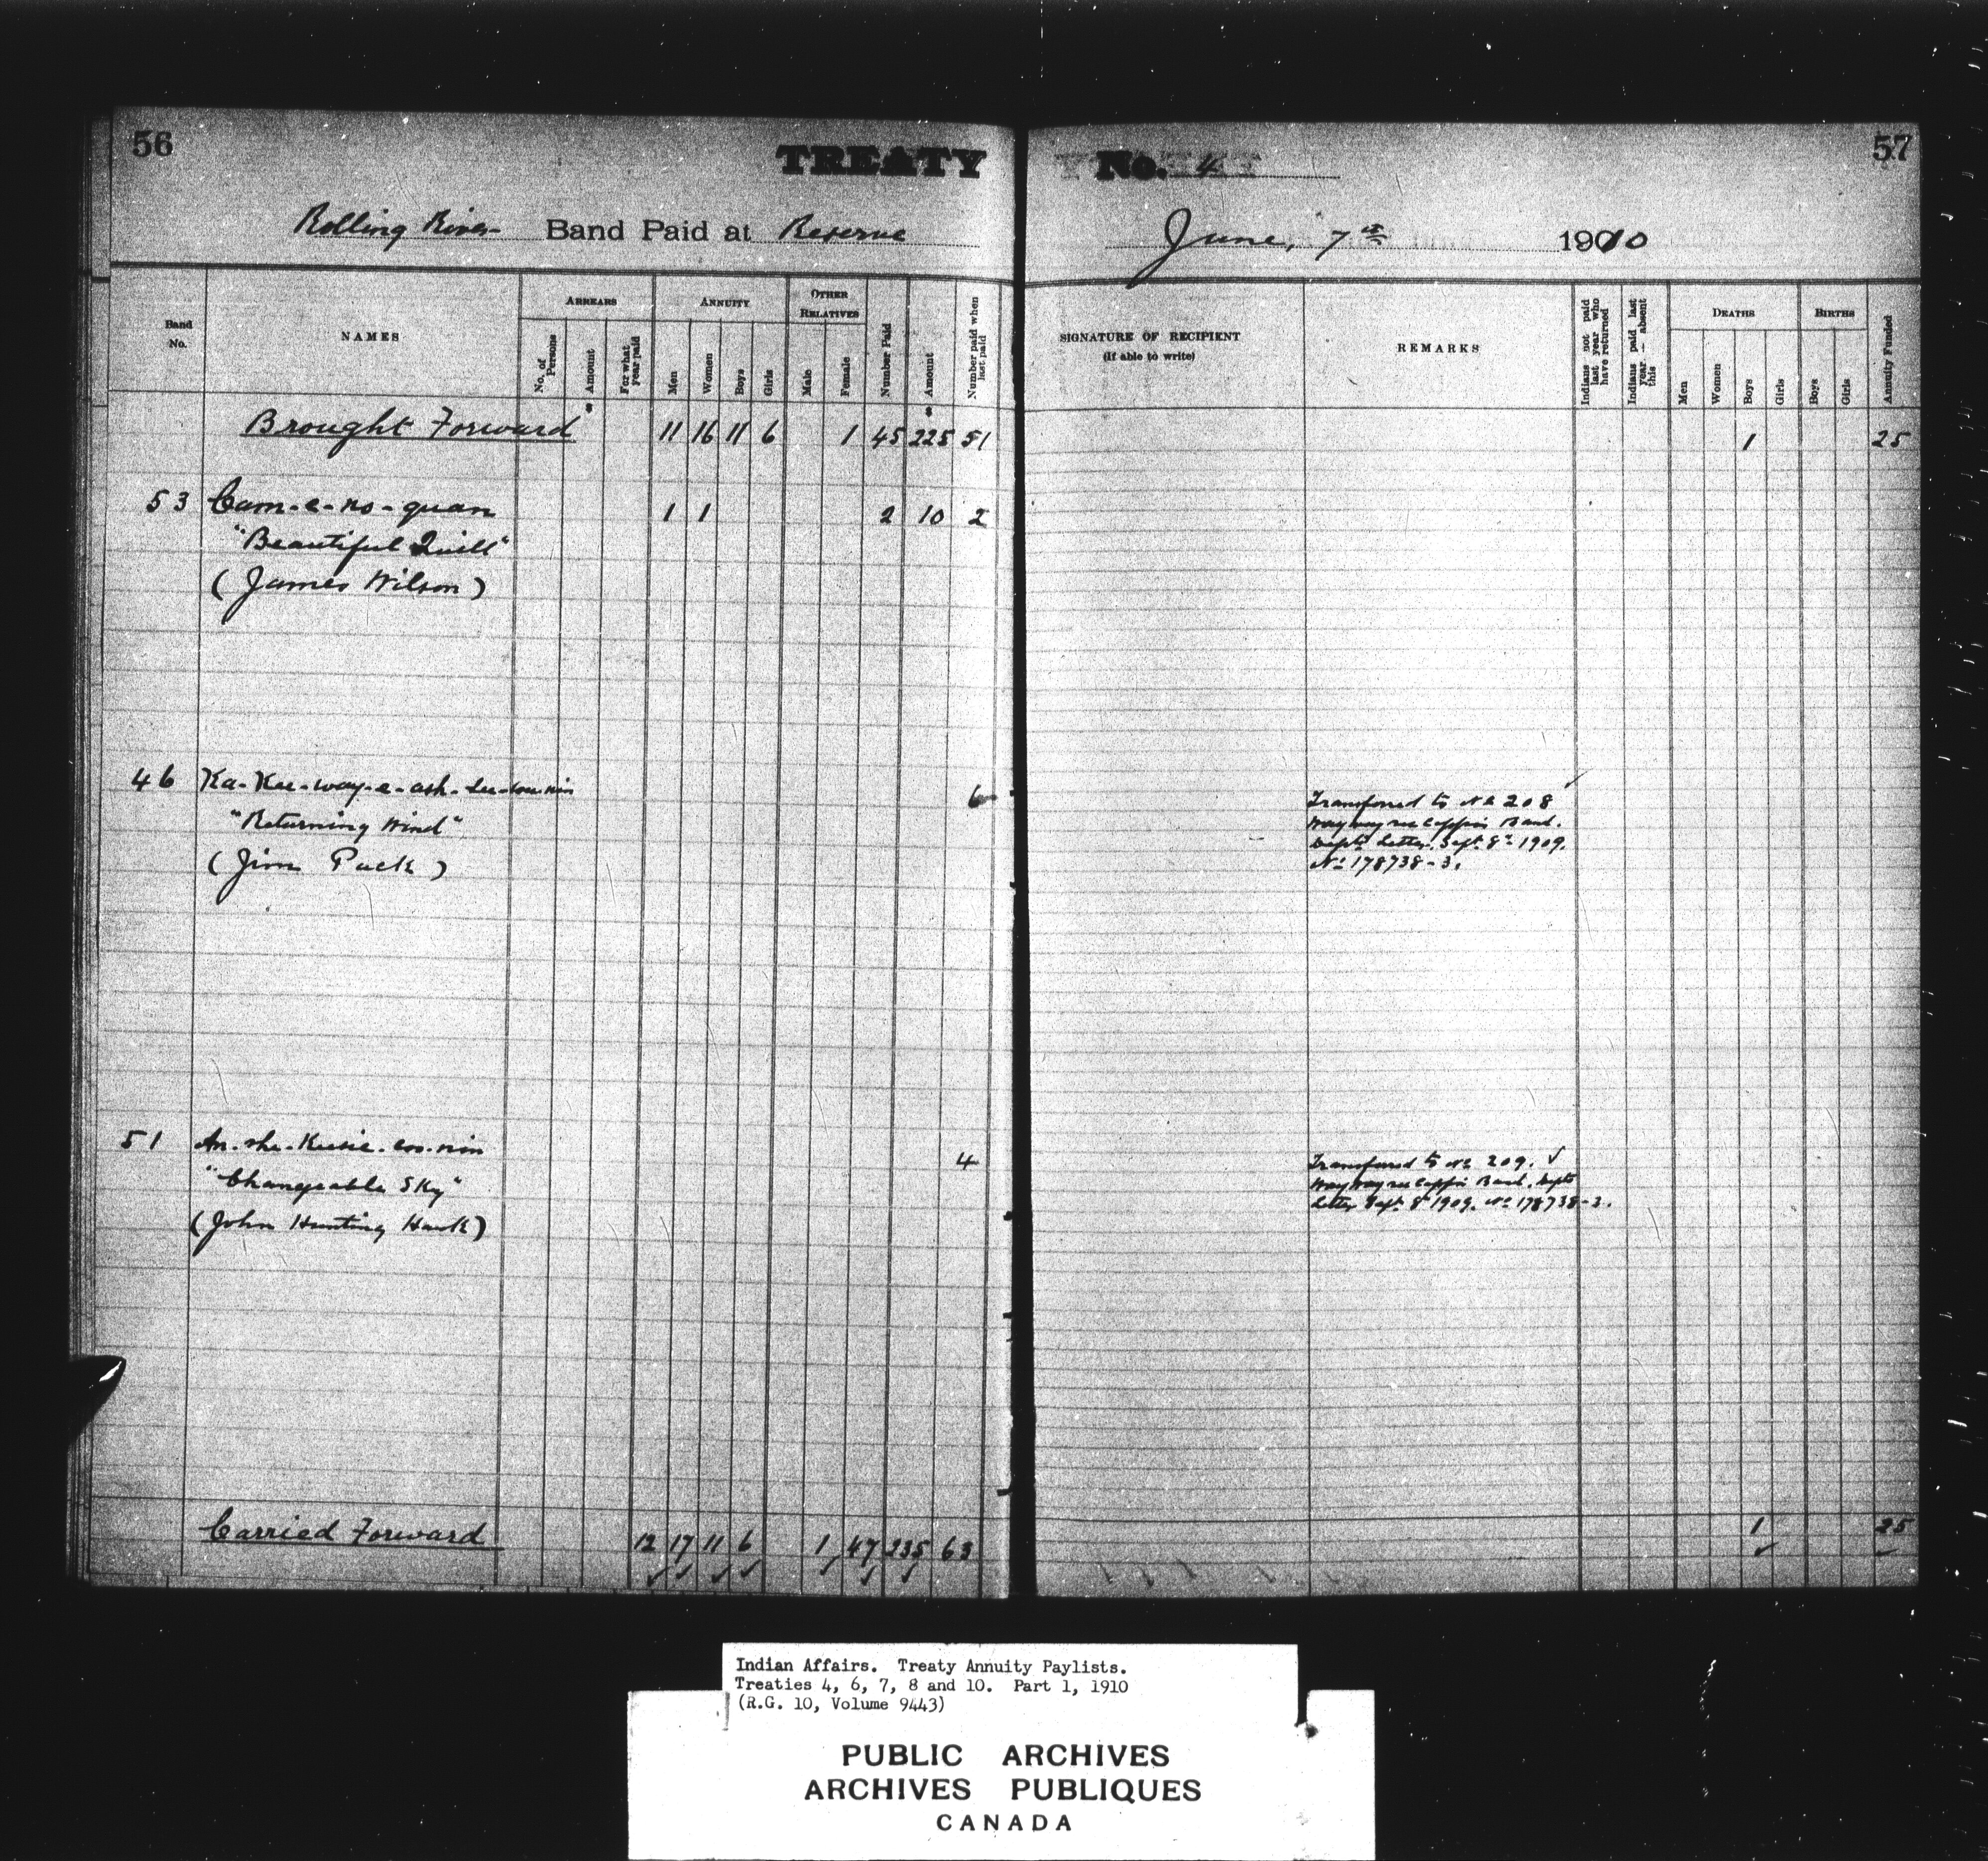 56
TREATY
No. 4
57
Rolling River Band Paid at Reserve
June, 7th 1910
Band No.
NAMES
ARREARS
No. of Persons
Amount
For what year paid
ANNUITY
Men
Women
Boys
Girls
OTHER RELATIVES
Male
Female
Number Paid
Amount
Number paid when last paid
SIGNATURE OF RECIPIENT
(If able to write)
REMARKS
Indians not paid last year who have returned
Indians paid last year — absent this
DEATHS
Men
Women
Boys
Girls
BIRTHS
Boys
Girls
Annuity Funded
Brought Forward 11 16 11 6 1 45 225 51 1 25
53 Cam-e-no-quan 1 1 2 10 2
"Beautiful Quill"
(James Wilson)
46 Ka-Kee-way-e-ash- 6 Transferred to No 208
"Returning Wind" Band.
(Jim Puck) Dept. Letter. Sept. 8th 1909.
No 178738-3.
51 4 Transferred to No 209.
"Changeable Sky" Band. Dept
(John Hunting Hawk) Letter Sept. 8th 1909. No 178738-3.
Carried Forward 12 17 11 6 1 47 235 63 1 25
Indian Affairs. Treaty Annuity Paylists.
Treaties 4, 6, 7, 8 and 10. Part 1, 1910
(R.G. 10, Volume 9443)
PUBLIC ARCHIVES
ARCHIVES PUBLIQUES
CANADA